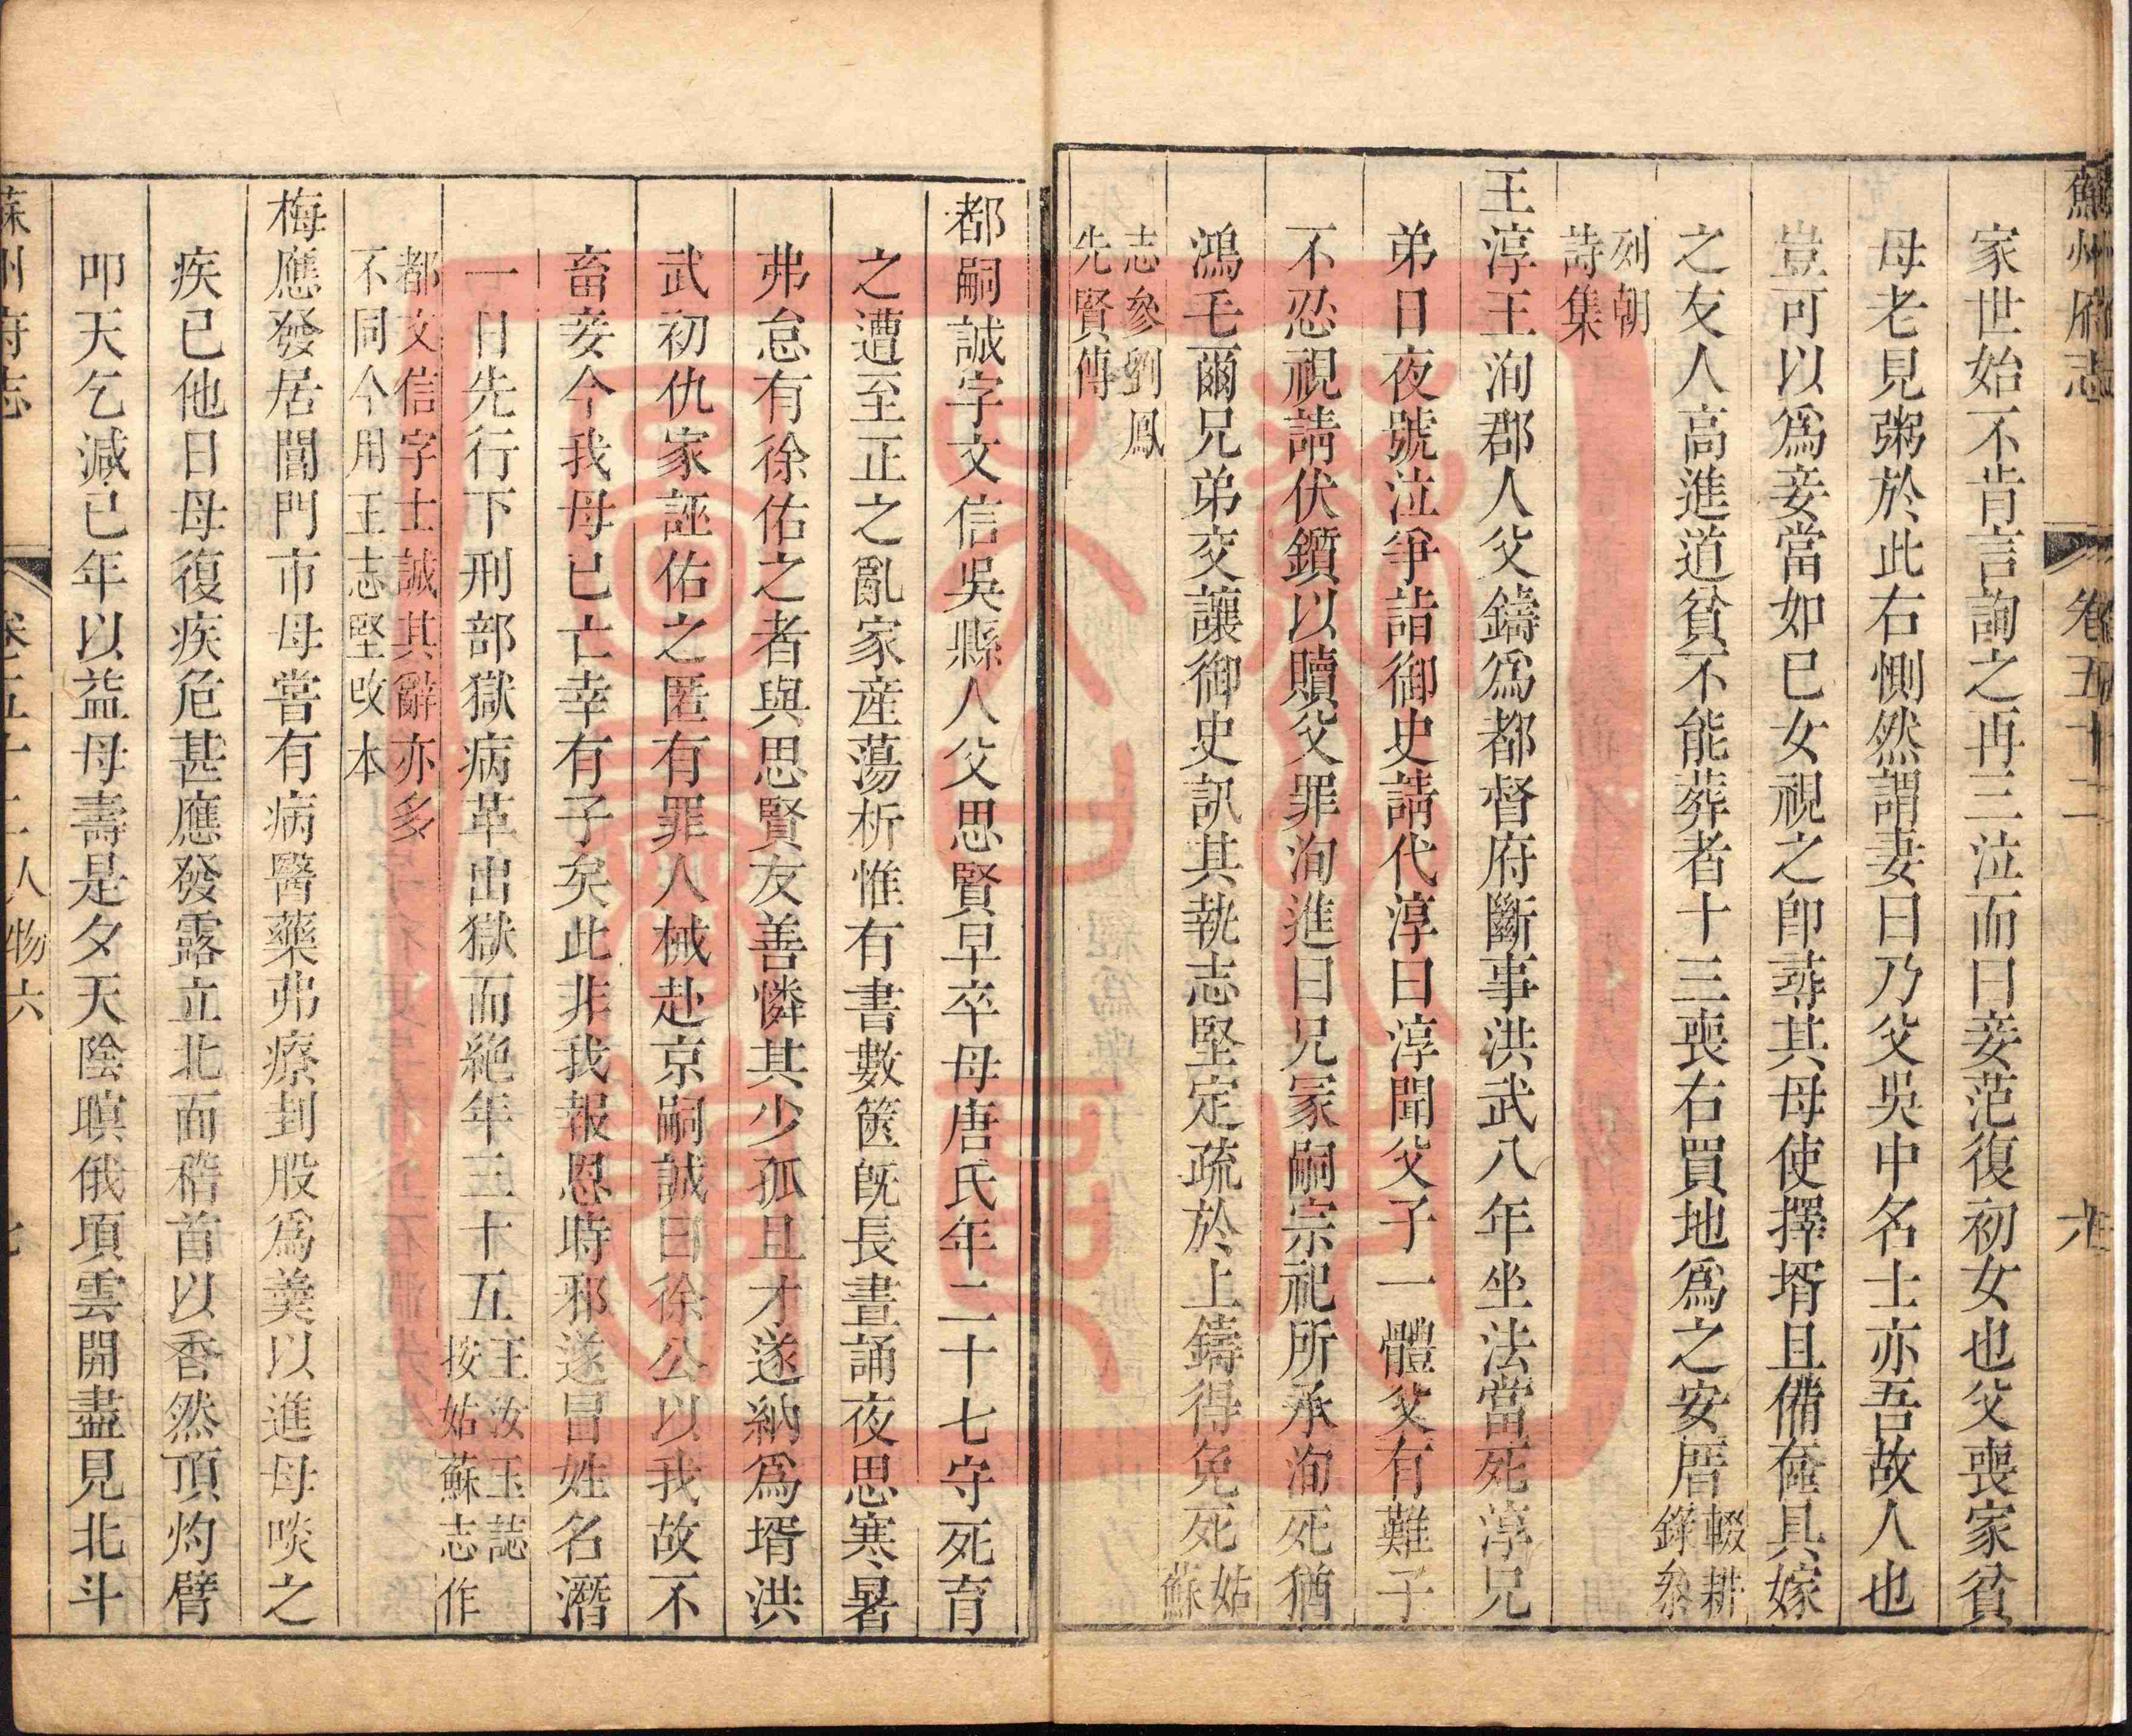 蘇州府志 卷五十二 六
家世始不肯言詢之再三泣而曰妾范復初女也父喪家貧
母老見粥於此右惻然謂妻曰乃父吳中名士亦吾故人也
豈可以爲妾當如己女視之卽尋其母使擇壻且備奩具嫁
之友人高進道貧不能葬者十三喪右買地爲之安厝輟耕
錄叅
列朝
詩集
王淳王洵郡人父鑄爲都督府斷事洪武八年坐法當死淳兄
弟日夜號泣爭詣御史請代淳曰淳聞父子一體父有難子
不忍視請伏鑕以贖父罪洵進曰兄冢嗣宗祀所承洵死猶
鴻毛爾兄弟交讓御史訊其執志堅定疏於上鑄得免死姑
蘇
志參劉鳳
先賢傳
都嗣誠字文信吳縣人父思賢早卒母唐氏年二十七守死育
之遭至正之亂家産蕩析惟有書數篋旣長晝誦夜思寒暑
弗怠有徐佑之者與思賢友善憐其少孤且才遂納爲壻洪
武初仇家誣佑之匿有罪人械赴京嗣誠曰徐公以我故不
畜妾今我母已亡幸有子矣此非我報恩時邪遂冒姓名潛
一日先行下刑部獄病革出獄而絶年三十五王汝玉誌
按姑蘇志作
都文信字士誠其辭亦多
不同今用王志堅改本
梅應發居閶門市母嘗有病醫藥弗療刲股爲羹以進母啖之
疾已他日母復疾危甚應發露立北面稽首以香然頂灼臂
叩天乞減己年以益母壽是夕天陰暝俄頃雲開盡見北斗
蘇州府志 卷五十二人物六 七